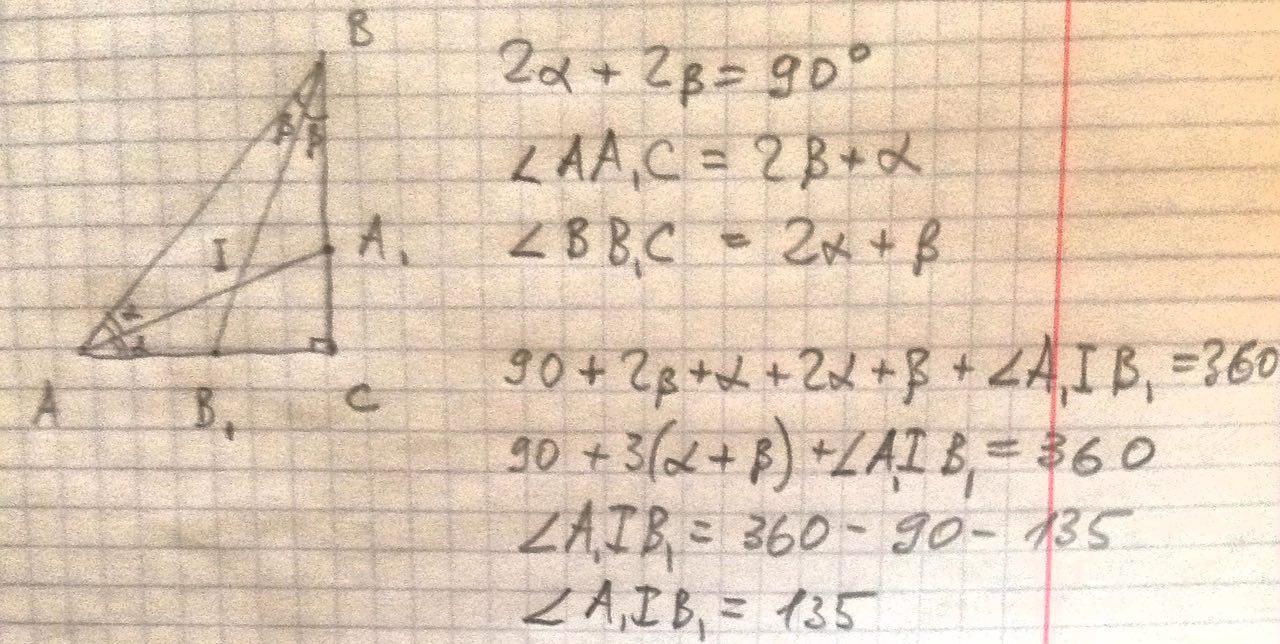 B
β β
I
A₁
α
α
A B₁ C
2α + 2β = 90°
∠AA₁C = 2β + α
∠BB₁C = 2α + β
90 + 2β + α + 2α + β + ∠A₁IB₁ = 360
90 + 3(α + β) + ∠A₁IB₁ = 360
∠A₁IB₁ = 360 - 90 - 135
∠A₁IB₁ = 135